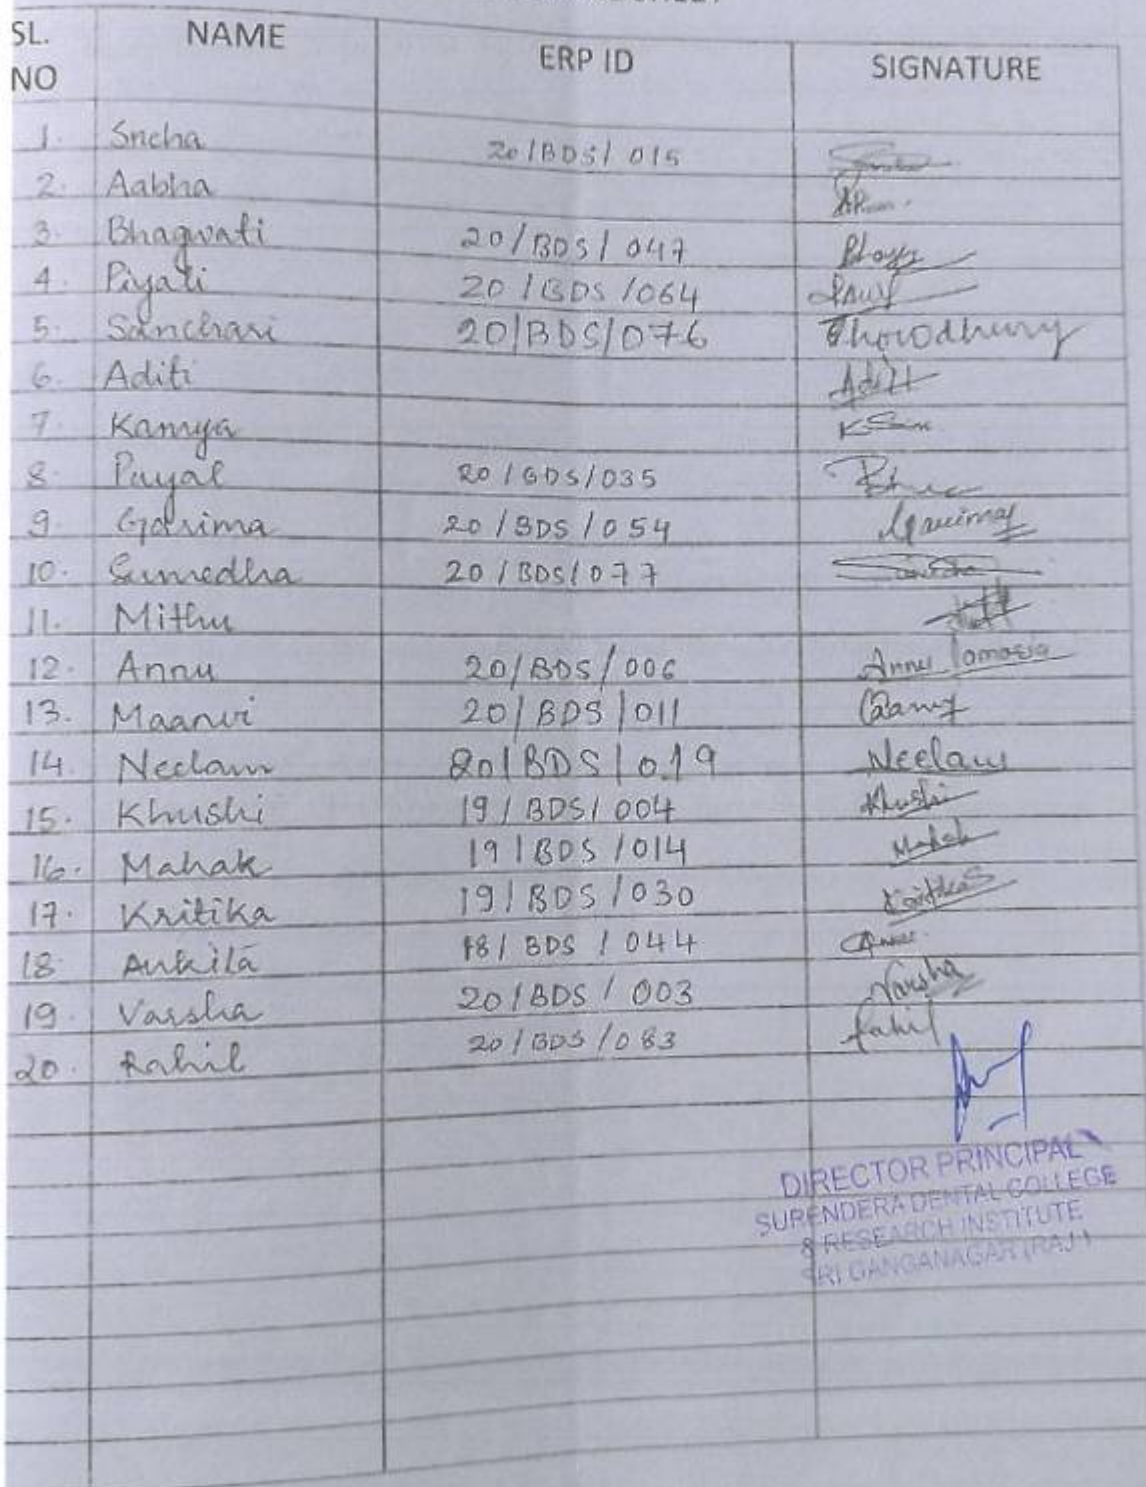 SL. NO NAME ERP ID SIGNATURE
1. Sneha 20/BDS/015
2. Aabha
3. Bhagwati 20/BDS/047
4. Piyali 20/BDS/064
5. Sanchari 20/BDS/076 Chowdhury
6. Aditi Aditi
7. Kamya
8. Payal 20/BDS/035
9. Garima 20/BDS/054 Garima
10. Sumedha 20/BDS/077
11. Mithu
12. Annu 20/BDS/006 Annu
13. Maanvi 20/BDS/011
14. Neelam 20/BDS/019 Neelam
15. Khushi 19/BDS/004 Khushi
16. Mahak 19/BDS/014 Mahak
17. Kritika 19/BDS/030
18. Ankita 18/BDS/044
19. Varsha 20/BDS/003 Varsha
20. Rahil 20/BDS/083 Rahil
DIRECTOR PRINCIPAL
SURENDERA DENTAL COLLEGE
& RESEARCH INSTITUTE
SRI GANGANAGAR (RAJ.)